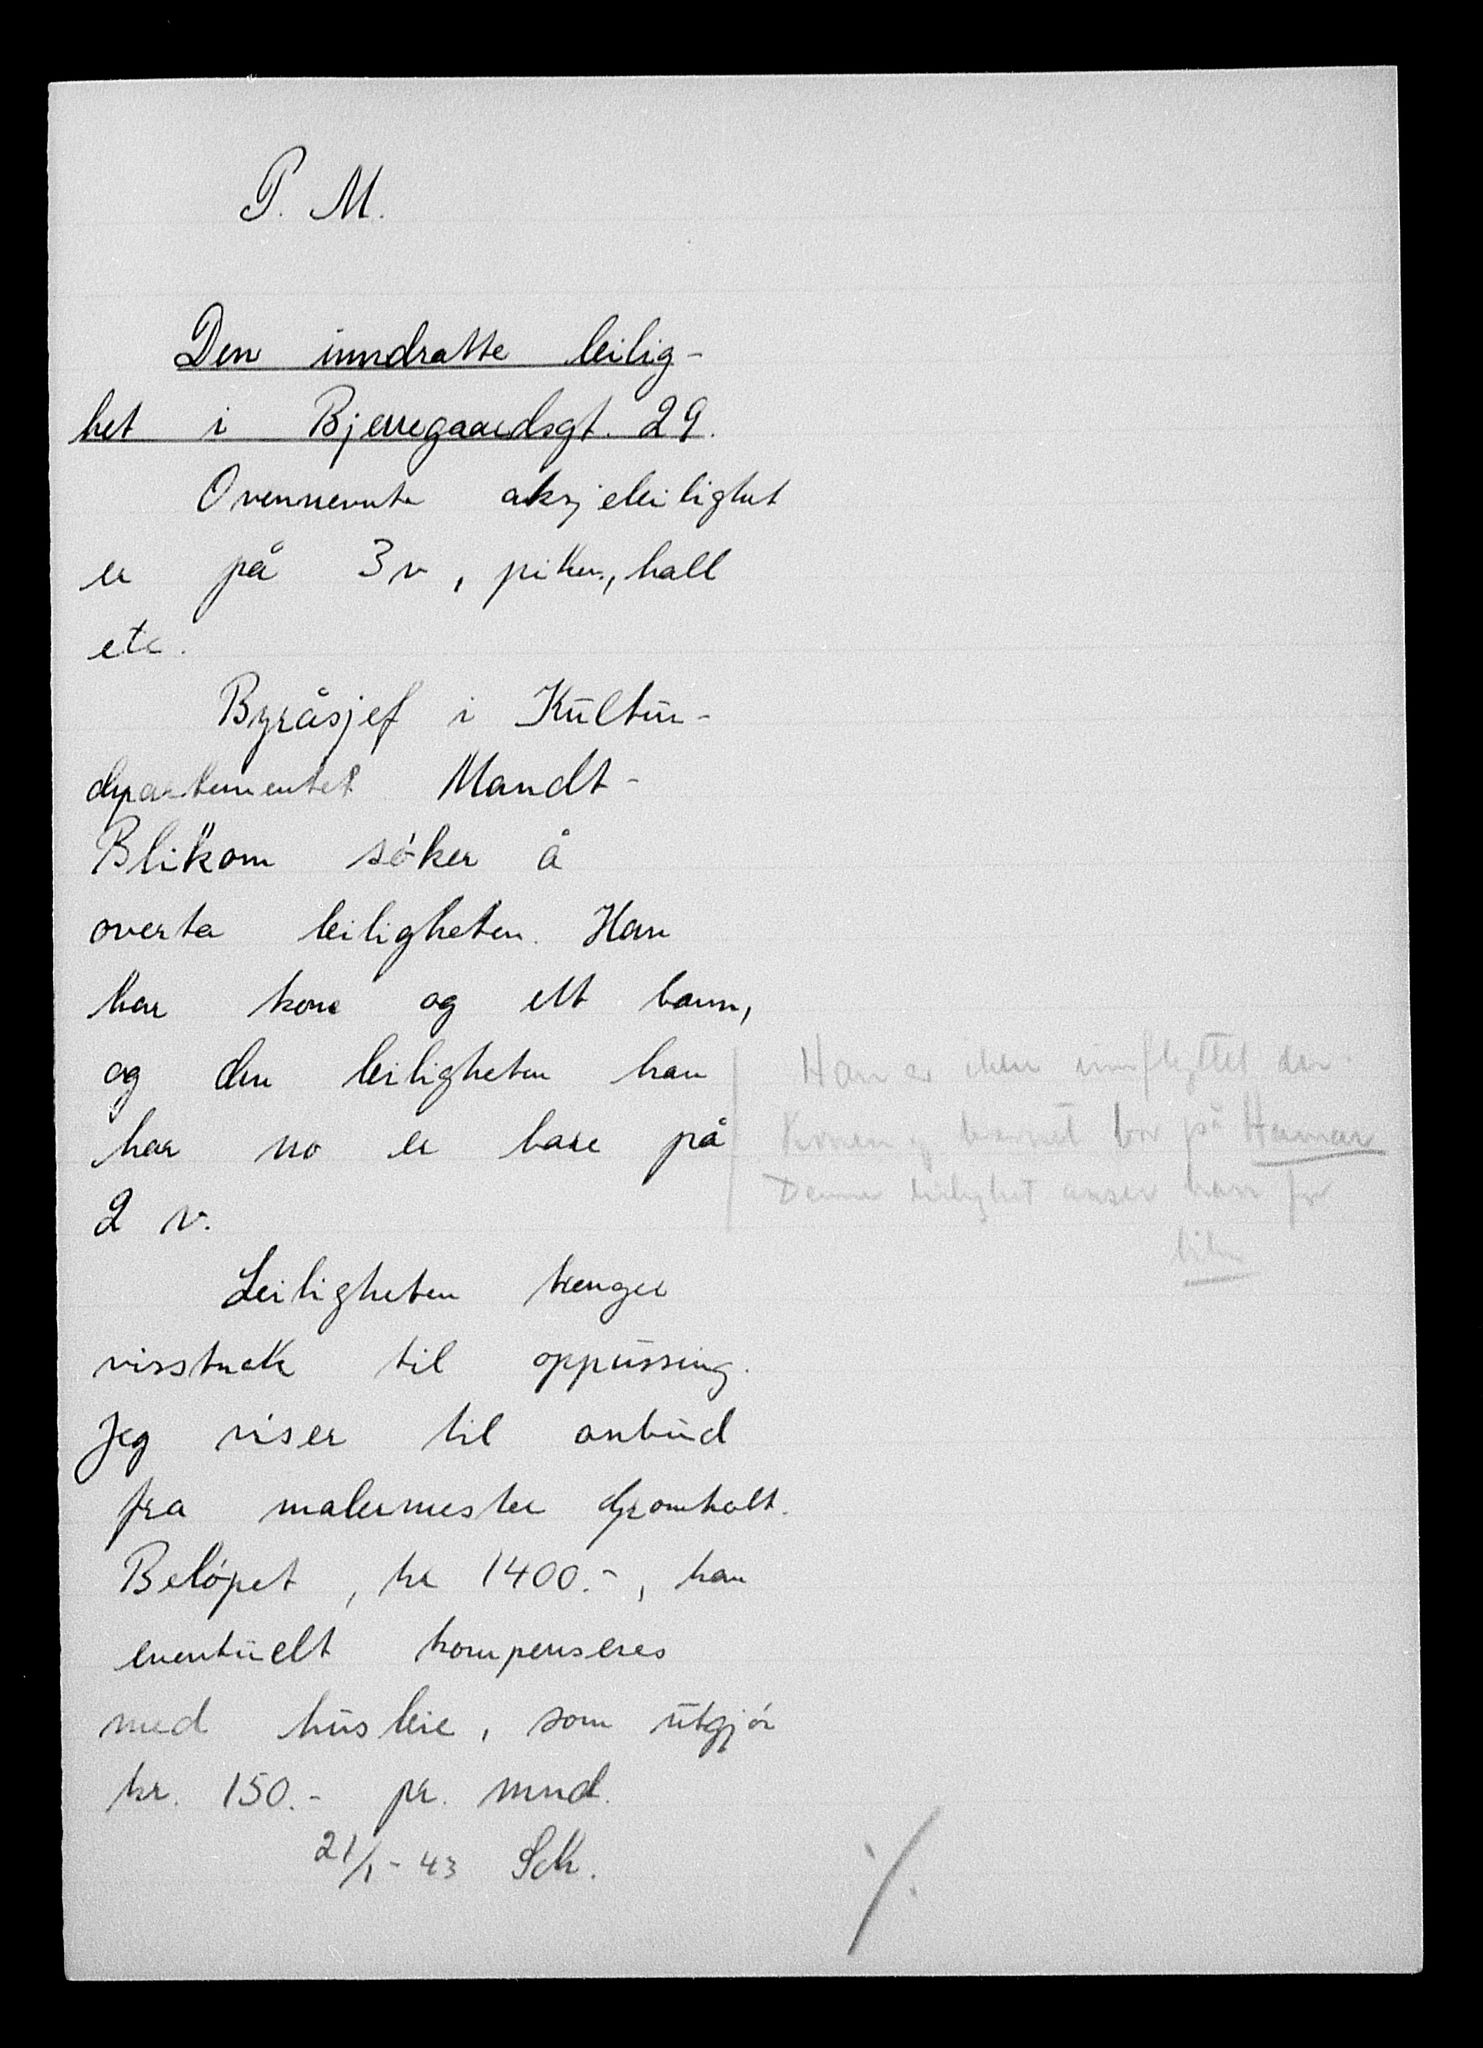 P. M.
Den inndratte leilig-
het i Bjerregaardsgt. 29.
Ovennevnte aksjeleilighet
er på 3 v, pikev., hall
etc.
Byråsjef i Kultur-
departementet Mandt-
Blikom søker å
overta leiligheten. Han
har kone og ett barn,
og den leiligheten han
har no er bare på
2 v.
Leiligheten trenger
visstnok til oppussing.
Jeg viser til anbud
fra malermester Gromholt.
Beløpet, kr 1400.-, kan
eventuelt kompenseres
med husleie, som utgjør
kr. 150.- pr. mnd.
21/1-43 Sch.
Han er ikke innflyttet der
Konen og barnet bor på Hamar
Denne leilighet anser han for
liten
./.